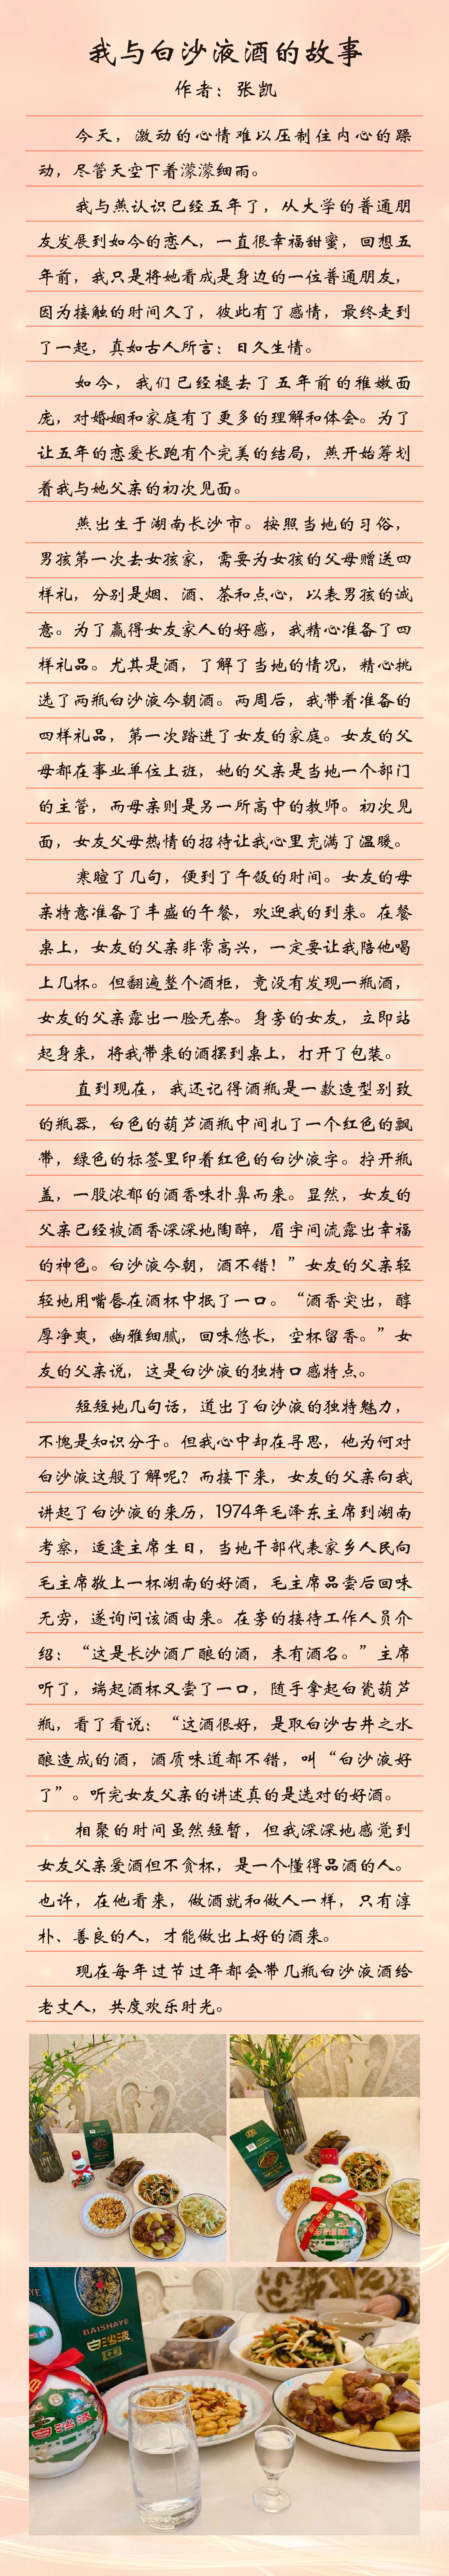 我与白沙液酒的故事
作者：张凯
今天，激动的心情难以压制住内心的躁
动，尽管天空下着濛濛细雨。
我与燕认识已经五年了，从大学的普通朋
友发展到如今的恋人，一直很幸福甜蜜，回想五
年前，我只是将她看成是身边的一位普通朋友，
因为接触的时间久了，彼此有了感情，最终走到
了一起，真如古人所言：日久生情。
如今，我们已经褪去了五年前的稚嫩面
庞，对婚姻和家庭有了更多的理解和体会。为了
让五年的恋爱长跑有个完美的结局，燕开始筹划
着我与她父亲的初次见面。
燕出生于湖南长沙市。按照当地的习俗，
男孩第一次去女孩家，需要为女孩的父母赠送四
样礼，分别是烟、酒、茶和点心，以表男孩的诚
意。为了赢得女友家人的好感，我精心准备了四
样礼品。尤其是酒，了解了当地的情况，精心挑
选了两瓶白沙液今朝酒。两周后，我带着准备的
四样礼品，第一次踏进了女友的家庭。女友的父
母都在事业单位上班，她的父亲是当地一个部门
的主管，而母亲则是另一所高中的教师。初次见
面，女友父母热情的招待让我心里充满了温暖。
寒暄了几句，便到了午饭的时间。女友的母
亲特意准备了丰盛的午餐，欢迎我的到来。在餐
桌上，女友的父亲非常高兴，一定要让我陪他喝
上几杯。但翻遍整个酒柜，竟没有发现一瓶酒，
女友的父亲露出一脸无奈。身旁的女友，立即站
起身来，将我带来的酒摆到桌上，打开了包装。
直到现在，我还记得酒瓶是一款造型别致
的瓶器，白色的葫芦酒瓶中间扎了一个红色的飘
带，绿色的标签里印着红色的白沙液字。拧开瓶
盖，一股浓郁的酒香味扑鼻而来。显然，女友的
父亲已经被酒香深深地陶醉，眉宇间流露出幸福
的神色。白沙液今朝，酒不错！”女友的父亲轻
轻地用嘴唇在酒杯中抿了一口。“酒香突出，醇
厚净爽，幽雅细腻，回味悠长，空杯留香。”女
友的父亲说，这是白沙液的独特口感特点。
短短地几句话，道出了白沙液的独特魅力，
不愧是知识分子。但我心中却在寻思，他为何对
白沙液这般了解呢？而接下来，女友的父亲向我
讲起了白沙液的来历，1974年毛泽东主席到湖南
考察，适逢主席生日，当地干部代表家乡人民向
毛主席敬上一杯湖南的好酒，毛主席品尝后回味
无穷，遂询问该酒由来。在旁的接待工作人员介
绍：“这是长沙酒厂酿的酒，未有酒名。”主席
听了，端起酒杯又尝了一口，随手拿起白瓷葫芦
瓶，看了看说：“这酒很好，是取白沙古井之水
酿造成的酒，酒质味道都不错，叫“白沙液好
了”。听完女友父亲的讲述真的是选对的好酒。
相聚的时间虽然短暂，但我深深地感觉到
女友父亲爱酒但不贪杯，是一个懂得品酒的人。
也许，在他看来，做酒就和做人一样，只有淳
朴、善良的人，才能做出上好的酒来。
现在每年过节过年都会带几瓶白沙液酒给
老丈人，共度欢乐时光。
BAISHAYE
白沙液
白沙液